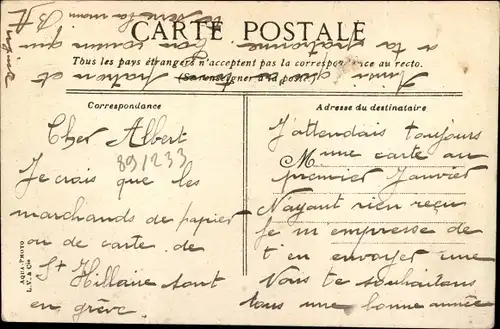 CARTE POSTALE
Tous les pays étrangers n'acceptent pas la correspondance au recto.
(Se renseigner à la poste).
Correspondance
Adresse du destinataire
Cher Albert
891233
Je crois que les
marchands de papier
ou de carte de
St Hillaire sont
en grève.
J'attendais toujours
M une carte au
premier Janvier
N'ayant rien reçu
Je m'empresse de
t'en envoyer une
Nous te souhaitons
tous une bonne année
Amir que patron et
a la patronne bon cousin qui
te serre la main
AQUA-PHOTO
L.V. & Cie